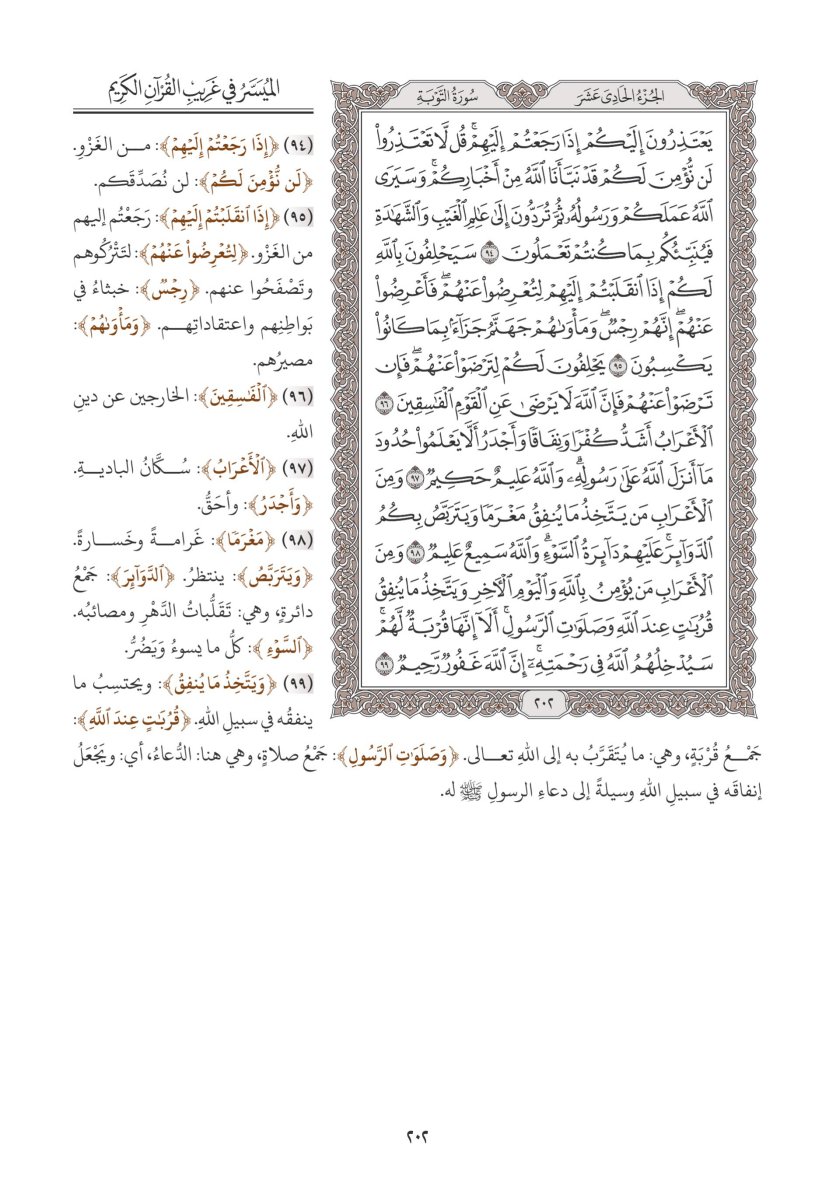 الجُزْءُ الحَادِي عَشَرَ
سُورَةُ التَّوْبَةِ
يَعْتَذِرُونَ إِلَيْكُمْ إِذَا رَجَعْتُمْ إِلَيْهِمْۚ قُل لَّا تَعْتَذِرُواْ
لَن نُّؤْمِنَ لَكُمْ قَدْ نَبَّأَنَا ٱللَّهُ مِنْ أَخْبَارِكُمْۚ وَسَيَرَى
ٱللَّهُ عَمَلَكُمْ وَرَسُولُهُۥ ثُمَّ تُرَدُّونَ إِلَىٰ عَٰلِمِ ٱلْغَيْبِ وَٱلشَّهَٰدَةِ
فَيُنَبِّئُكُم بِمَا كُنتُمْ تَعْمَلُونَ ٩٤ سَيَحْلِفُونَ بِٱللَّهِ
لَكُمْ إِذَا ٱنقَلَبْتُمْ إِلَيْهِمْ لِتُعْرِضُواْ عَنْهُمْۖ فَأَعْرِضُواْ
عَنْهُمْۖ إِنَّهُمْ رِجْسٌۖ وَمَأْوَىٰهُمْ جَهَنَّمُ جَزَآءَۢ بِمَا كَانُواْ
يَكْسِبُونَ ٩٥ يَحْلِفُونَ لَكُمْ لِتَرْضَوْاْ عَنْهُمْۖ فَإِن
تَرْضَوْاْ عَنْهُمْ فَإِنَّ ٱللَّهَ لَا يَرْضَىٰ عَنِ ٱلْقَوْمِ ٱلْفَٰسِقِينَ ٩٦
ٱلْأَعْرَابُ أَشَدُّ كُفْرًا وَنِفَاقًا وَأَجْدَرُ أَلَّا يَعْلَمُواْ حُدُودَ
مَآ أَنزَلَ ٱللَّهُ عَلَىٰ رَسُولِهِۦۗ وَٱللَّهُ عَلِيمٌ حَكِيمٌ ٩٧ وَمِنَ
ٱلْأَعْرَابِ مَن يَتَّخِذُ مَا يُنفِقُ مَغْرَمًا وَيَتَرَبَّصُ بِكُمُ
ٱلدَّوَآئِرَۚ عَلَيْهِمْ دَآئِرَةُ ٱلسَّوْءِۗ وَٱللَّهُ سَمِيعٌ عَلِيمٌ ٩٨ وَمِنَ
ٱلْأَعْرَابِ مَن يُؤْمِنُ بِٱللَّهِ وَٱلْيَوْمِ ٱلْءَاخِرِ وَيَتَّخِذُ مَا يُنفِقُ
قُرُبَٰتٍ عِندَ ٱللَّهِ وَصَلَوَٰتِ ٱلرَّسُولِۚ أَلَآ إِنَّهَا قُرْبَةٌ لَّهُمْۚ
سَيُدْخِلُهُمُ ٱللَّهُ فِى رَحْمَتِهِۦٓۚ إِنَّ ٱللَّهَ غَفُورٌ رَّحِيمٌ ٩٩
٢٠٢
المُيَسَّرُ في غَرِيبِ القُرْآنِ الكَرِيمِ
(٩٤) ﴿إِذَا رَجَعْتُمْ إِلَيْهِمْ﴾: من الغَزْوِ.
﴿لَن نُّؤْمِنَ لَكُمْ﴾: لن نُصَدِّقَكم.
(٩٥) ﴿إِذَا ٱنقَلَبْتُمْ إِلَيْهِمْ﴾: رَجَعْتُم إليهم
من الغَزْوِ. ﴿لِتُعْرِضُواْ عَنْهُمْ﴾: لتَتْرُكُوهم
وتَصْفَحُوا عنهم. ﴿رِجْسٌ﴾: خبثاءُ في
بَواطِنِهم واعتقاداتِهم. ﴿وَمَأْوَىٰهُمْ﴾:
مصيرُهم.
(٩٦) ﴿ٱلْفَٰسِقِينَ﴾: الخارجين عن دينِ
اللهِ.
(٩٧) ﴿ٱلْأَعْرَابُ﴾: سُكَّانُ الباديةِ.
﴿وَأَجْدَرُ﴾: وأحَقُّ.
(٩٨) ﴿مَغْرَمًا﴾: غَرامةً وخَسارةً.
﴿وَيَتَرَبَّصُ﴾: ينتظرُ. ﴿ٱلدَّوَآئِرَ﴾: جَمْعُ
دائرةٍ، وهي: تَقَلُّباتُ الدَّهْرِ ومصائبُه.
﴿ٱلسَّوْءِ﴾: كلُّ ما يسوءُ وَيَضُرُّ.
(٩٩) ﴿وَيَتَّخِذُ مَا يُنفِقُ﴾: ويحتسِبُ ما
ينفقُه في سبيلِ اللهِ. ﴿قُرُبَٰتٍ عِندَ ٱللَّهِ﴾:
جَمْعُ قُرْبَةٍ، وهي: ما يُتَقَرَّبُ به إلى اللهِ تعالى. ﴿وَصَلَوَٰتِ ٱلرَّسُولِ﴾: جَمْعُ صلاةٍ، وهي هنا: الدُّعاءُ، أي: ويَجْعَلُ
إنفاقَه في سبيلِ اللهِ وسيلةً إلى دعاءِ الرسولِ ﷺ له.
٢٠٢